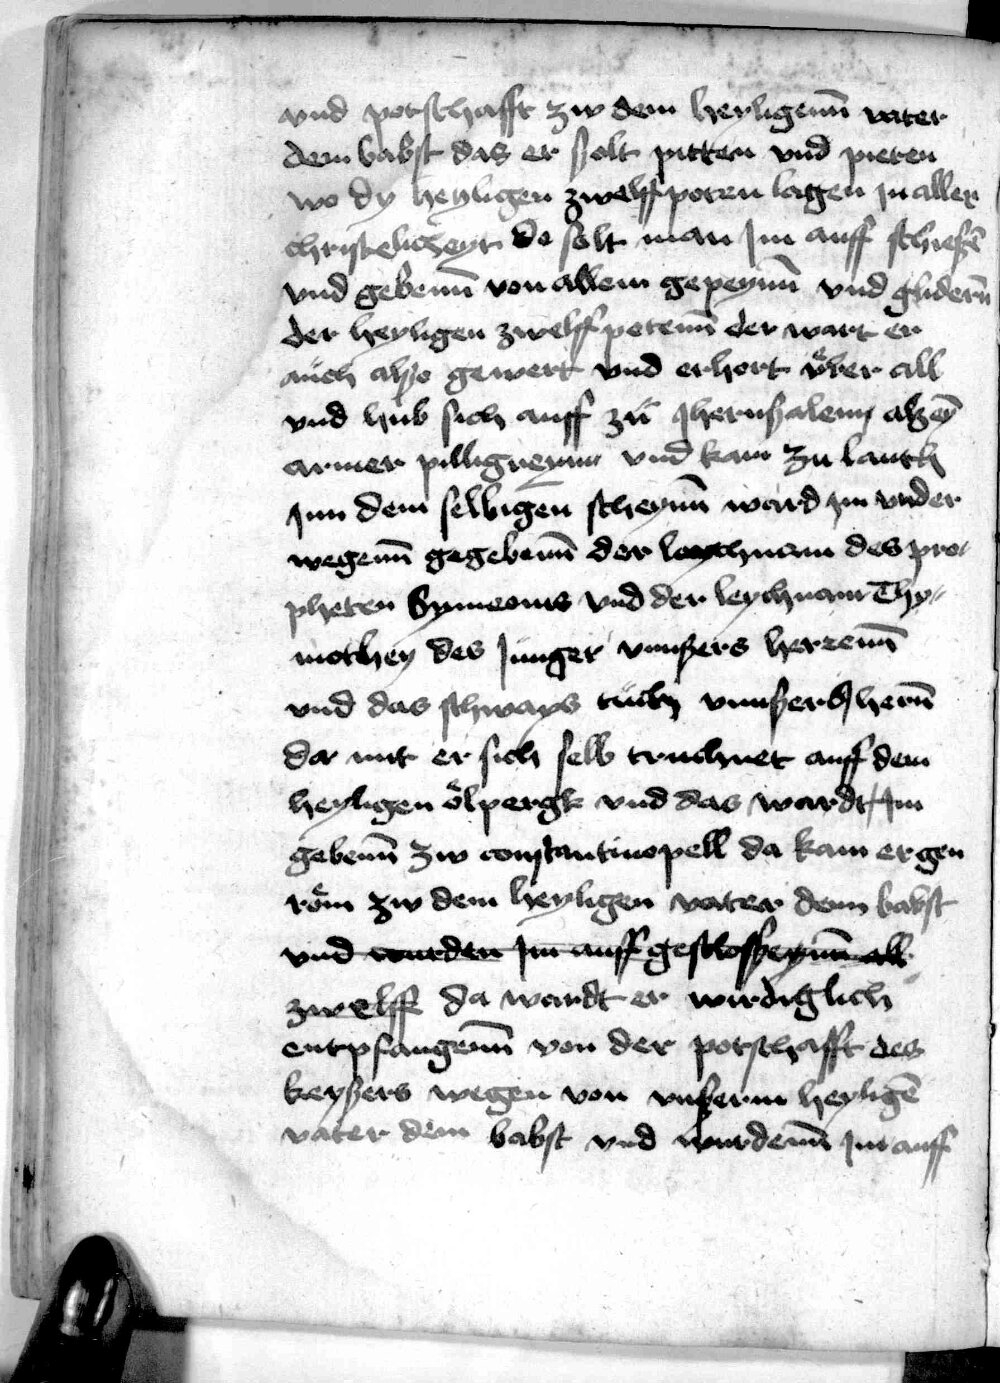 vnd potschafft zw dem heyligenn̄ vater
dem babst das er solt pitten vnd pieten
wo dy heyligen zwelffpoten lagen jn aller
christelicheyt do solt man jm auff schliessē
vnd gebenn̄ von allem gepeynn̄ vnd glidern̄
der heyligen zwelffpotenn̄ der wart er
auch also gewert vnd erhort vͤber all
vnd hub sich auff zu Jherußalem alß eyͤ
armer pilligreymm vnd kam zu lautt
Jnn dem selbigen scheynn̄ ward jm vnder
wegenn̄ gegebenn̄ der leychnam des pro-
pheten Symeonis vnd der leychnam Thy-
mothey des Junger vnnßers herrenn̄
vnd das schways tuch vnnßers herrn̄
da mit er sich selb truchnet auff dem
heyligen oͤlpergk vnd das wardt jm
gebenn̄ zw constantinopell da kam er gen
roͤm zw dem heyligen vater dem babst
vnd wurden jm auff geslosseynn̄ all
zwelff da wardt er wirdiglich
entpfangenn̄ von der potschafft des
keyßers wegen von vnßerm heyligē
vater dem babst vnd wurdenn̄ jm auff